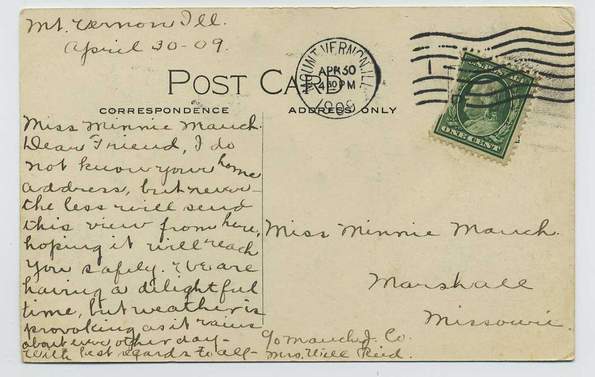 Mt. Vernon Ill.
April 30-09.
MOUNT VERNON, ILL.
APR 30
4 30 PM
1909
POST CARD
CORRESPONDENCE
ADDRESS ONLY
ONE CENT
Miss Minnie Mauch.
Dear Friend, I do
not know your home
address, but never-
the less will send
this view from here,
hoping it will reach
you safely. We are
having a dilightful
time, but weather is
provoking as it rains
about every other day-
With best regards to all-
Mrs. Will Reid.
Miss Minnie Mauch.
Marshall
Missouri.
c/o Mauch J. Co.